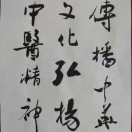 傳播中華
文化弘揚
中醫精神